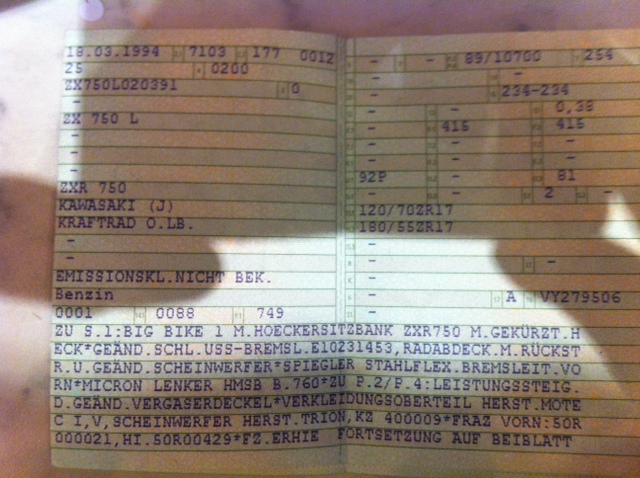 18.03.1994 7103 177 0012 - - 89/10700 254
25 0200 - -
ZX750L020391 0 - 234-234
- - - 0,38
ZX 750 L - 415 415
- - - -
- - - -
- 92P - 81
ZXR 750 - - 2 -
KAWASAKI (J) 120/70ZR17
KRAFTRAD O.LB. 180/55ZR17
- -
- - -
EMISSIONSKL.NICHT BEK. -
Benzin - A VY279506
0001 0088 749 -
ZU S.1:BIG BIKE 1 M.HOECKERSITZBANK ZXR750 M.GEKÜRZT.H
ECK*GEÄND.SCHL.USS-BREMSL.E10231453,RADABDECK.M.RÜCKST
R.U.GEÄND.SCHEINWERFER*SPIEGLER STAHLFLEX.BREMSLEIT.VO
RN*MICRON LENKER HMSB B.760*ZU P.2/P.4:LEISTUNGSSTEIG.
D.GEÄND.VERGASERDECKEL*VERKLEIDUNGSOBERTEIL HERST.MOTE
C I,V,SCHEINWERFER HERST.TRION,KZ 400009*FRAZ VORN:50R
000021,HI.50R00429*FZ.ERHIE FORTSETZUNG AUF BEIBLATT